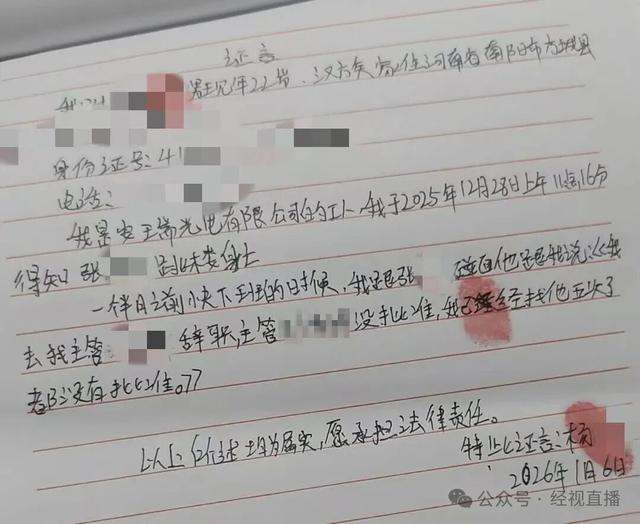 证言
男 现年22岁，汉族 住河南省南阳市方城县
身份证号：41
电话：
我是 光电有限公司的工人。我于2025年12月28日上午11点16分
得知张 身亡
一个月之前快下班的时候，我跟张 碰面他跟我说“我
去找主管 辞职，主管 没批准，我已经找他五次了
都没有批准。”
以上所述均为属实，愿承担法律责任。
特此证言：杨
2026年1月6日
公众号·经视直播